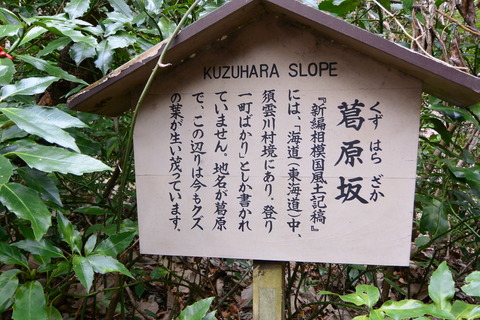 KUZUHARA SLOPE
くず はら ざか
葛原坂
『新編相模国風土記稿』
には、「海道（東海道）中、
須雲川村境にあり、登り
一町ばかり」としか書かれ
ていません。地名が葛原
で、この辺りは今もクズ
の葉が生い茂っています。